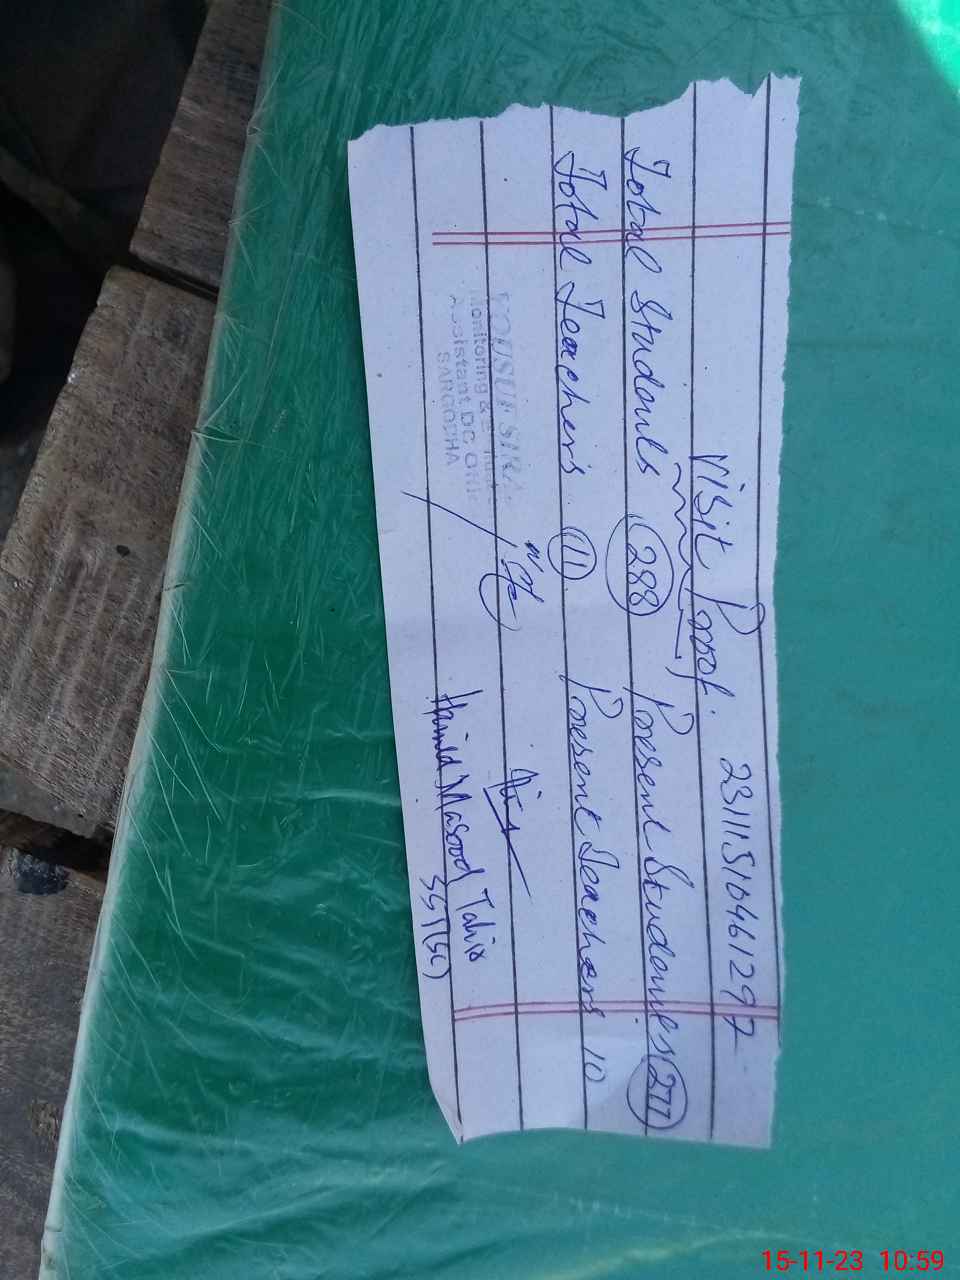 Visit Proof. 23111510461297
Total Students 288 Present Students 277
Total Teachers 11 Present Teachers 10
Monitoring &
Assistant DC
SARGODHA
Hamid Masood Tahir
SST(SC)
15-11-23 10:59